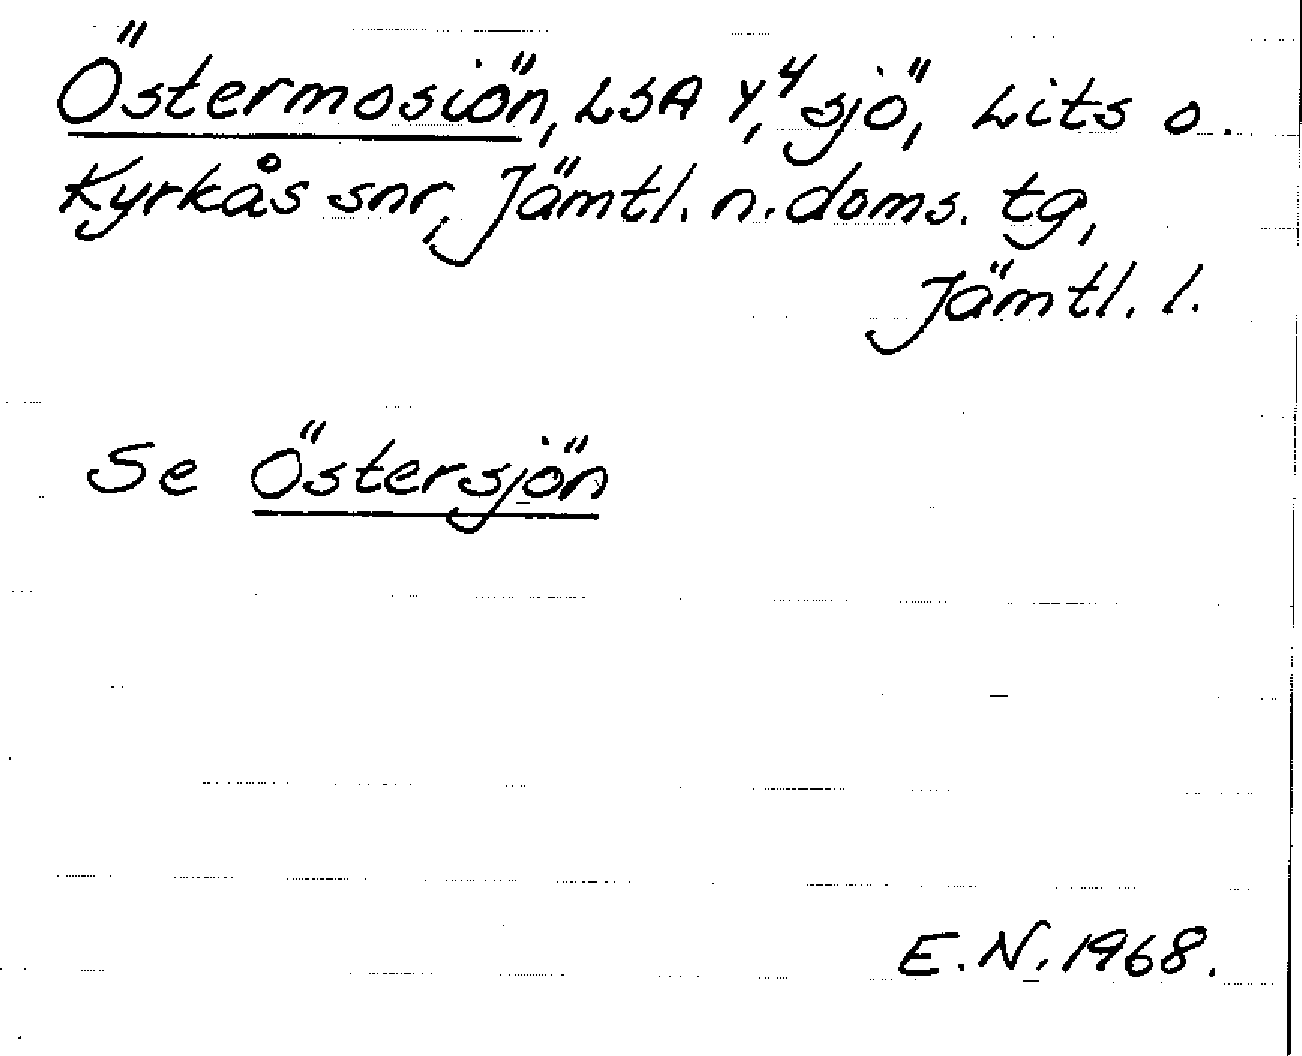 Östermosiön, LSA Y,⁴ sjö, Lits o.
Kyrkås snr, Jämtl. n. doms. tg,
Jämtl. l.
Se Östersjön
E.N. 1968.